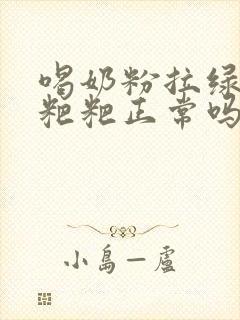 喝奶粉拉绿
粑粑正常吗
小島一盧